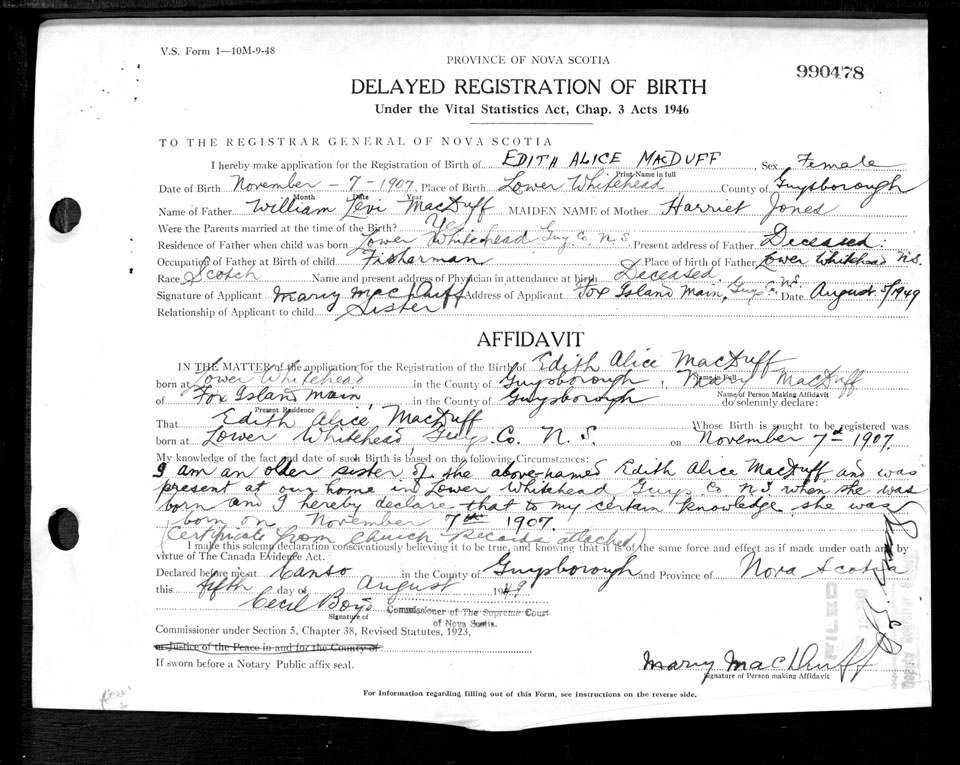 V.S. Form 1—10M-9-48
PROVINCE OF NOVA SCOTIA
990478
DELAYED REGISTRATION OF BIRTH
Under the Vital Statistics Act, Chap. 3 Acts 1946
TO THE REGISTRAR GENERAL OF NOVA SCOTIA
I hereby make application for the Registration of Birth of EDITH ALICE MACDUFF, Sex Female
Print Name in full
Date of Birth November - 7 - 1907, Place of Birth Lower Whitehead County of Guysborough
Month Date Year
Name of Father William Levi MacDuff MAIDEN NAME of Mother Harriet Jones
Were the Parents married at the time of the Birth? Yes
Residence of Father when child was born Lower Whitehead Guy. Co. N.S. Present address of Father Deceased.
Occupation of Father at Birth of child Fisherman Place of birth of Father Lower Whitehead N.S.
Race Scotch Name and present address of Physician in attendance at birth Deceased.
Signature of Applicant Mary MacDuff Address of Applicant Fox Island Main, Guys. Co. N.S. Date August 5/1949
Relationship of Applicant to child Sister
AFFIDAVIT
IN THE MATTER of the application for the Registration of the Birth of Edith Alice MacDuff
Name in Full
born at Lower Whitehead in the County of Guysborough, Mary MacDuff
Name of Person Making Affidavit
of Fox Island Main, in the County of Guysborough do solemnly declare:
Present Residence
That Edith Alice MacDuff Whose Birth is sought to be registered was
born at Lower Whitehead, Guys. Co. N.S. on November 7th 1907.
My knowledge of the fact and date of such Birth is based on the following Circumstances:
I am an older sister of the above-named Edith Alice MacDuff and was
present at our home in Lower Whitehead, Guys. Co N.S when she was
born and I hereby declare that to my certain knowledge she was
born on November 7th 1907.
(Certificate from Church Records attached)
I make this solemn declaration conscientiously believing it to be true, and knowing that it is of the same force and effect as if made under oath and by
virtue of The Canada Evidence Act.
Declared before me at Canso in the County of Guysborough and Province of Nova Scotia
this fifth day of August 1949
Cecil Boyd Commissioner of The Supreme Court
of Nova Scotia.
Signature of
Commissioner under Section 5, Chapter 38, Revised Statutes, 1923,
or Justice of the Peace in and for the County of
If sworn before a Notary Public affix seal.
Mary MacDuff
Signature of Person making Affidavit
For Information regarding filling out of this Form, see instructions on the reverse side.
FILED